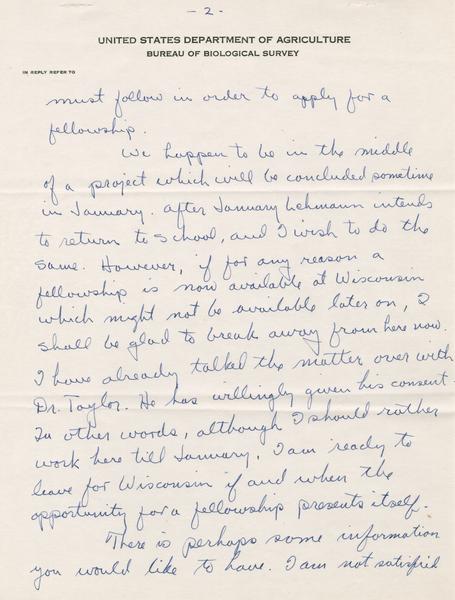 - 2 -
UNITED STATES DEPARTMENT OF AGRICULTURE
BUREAU OF BIOLOGICAL SURVEY
IN REPLY REFER TO
must follow in order to apply for a
fellowship.
We happen to be in the middle
of a project which will be concluded sometime
in January. After January Lehmann intends
to return to school, and I wish to do the
same. However, if for any reason a
fellowship is now available at Wisconsin
which might not be available later on, I
shall be glad to break away from here now.
I have already talked the matter over with
Dr. Taylor. He has willingly given his consent.
In other words, although I should rather
work here till January, I am ready to
leave for Wisconsin if and when the
opportunity for a fellowship presents itself.
There is perhaps some information
you would like to have. I am not satisfied